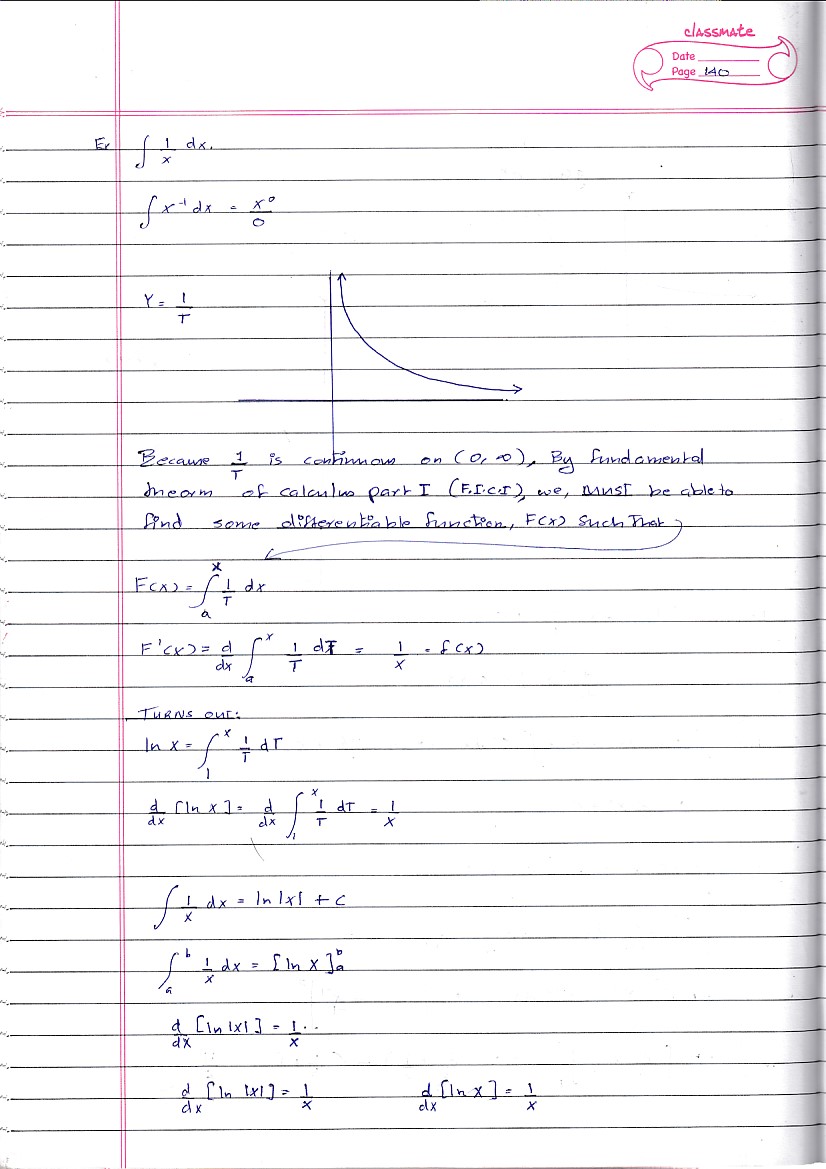 classmate
Date
Page 140
Ex ∫ 1/x dx.
∫ x⁻¹ dx = x⁰/0
Y = 1/T
Because 1/T is continuous on (0, ∞), By fundamental
theorm of calculus part I (F.T.C.I), we, MUST be able to
find some differentiable function, F(x) such that
F(x) = ∫ₐˣ 1/T dx
F'(x) = d/dx ∫ₐˣ 1/T dT = 1/x = f(x)
TURNS OUT:
ln x = ∫₁ˣ 1/T dT
d/dx [ln x] = d/dx ∫₁ˣ 1/T dT = 1/x
∫ 1/x dx = ln|x| + C
∫ₐᵇ 1/x dx = [ln x]ₐᵇ
d/dx [ln |x|] = 1/x..
d/dx [ln |x|] = 1/x d/dx [ln x] = 1/x